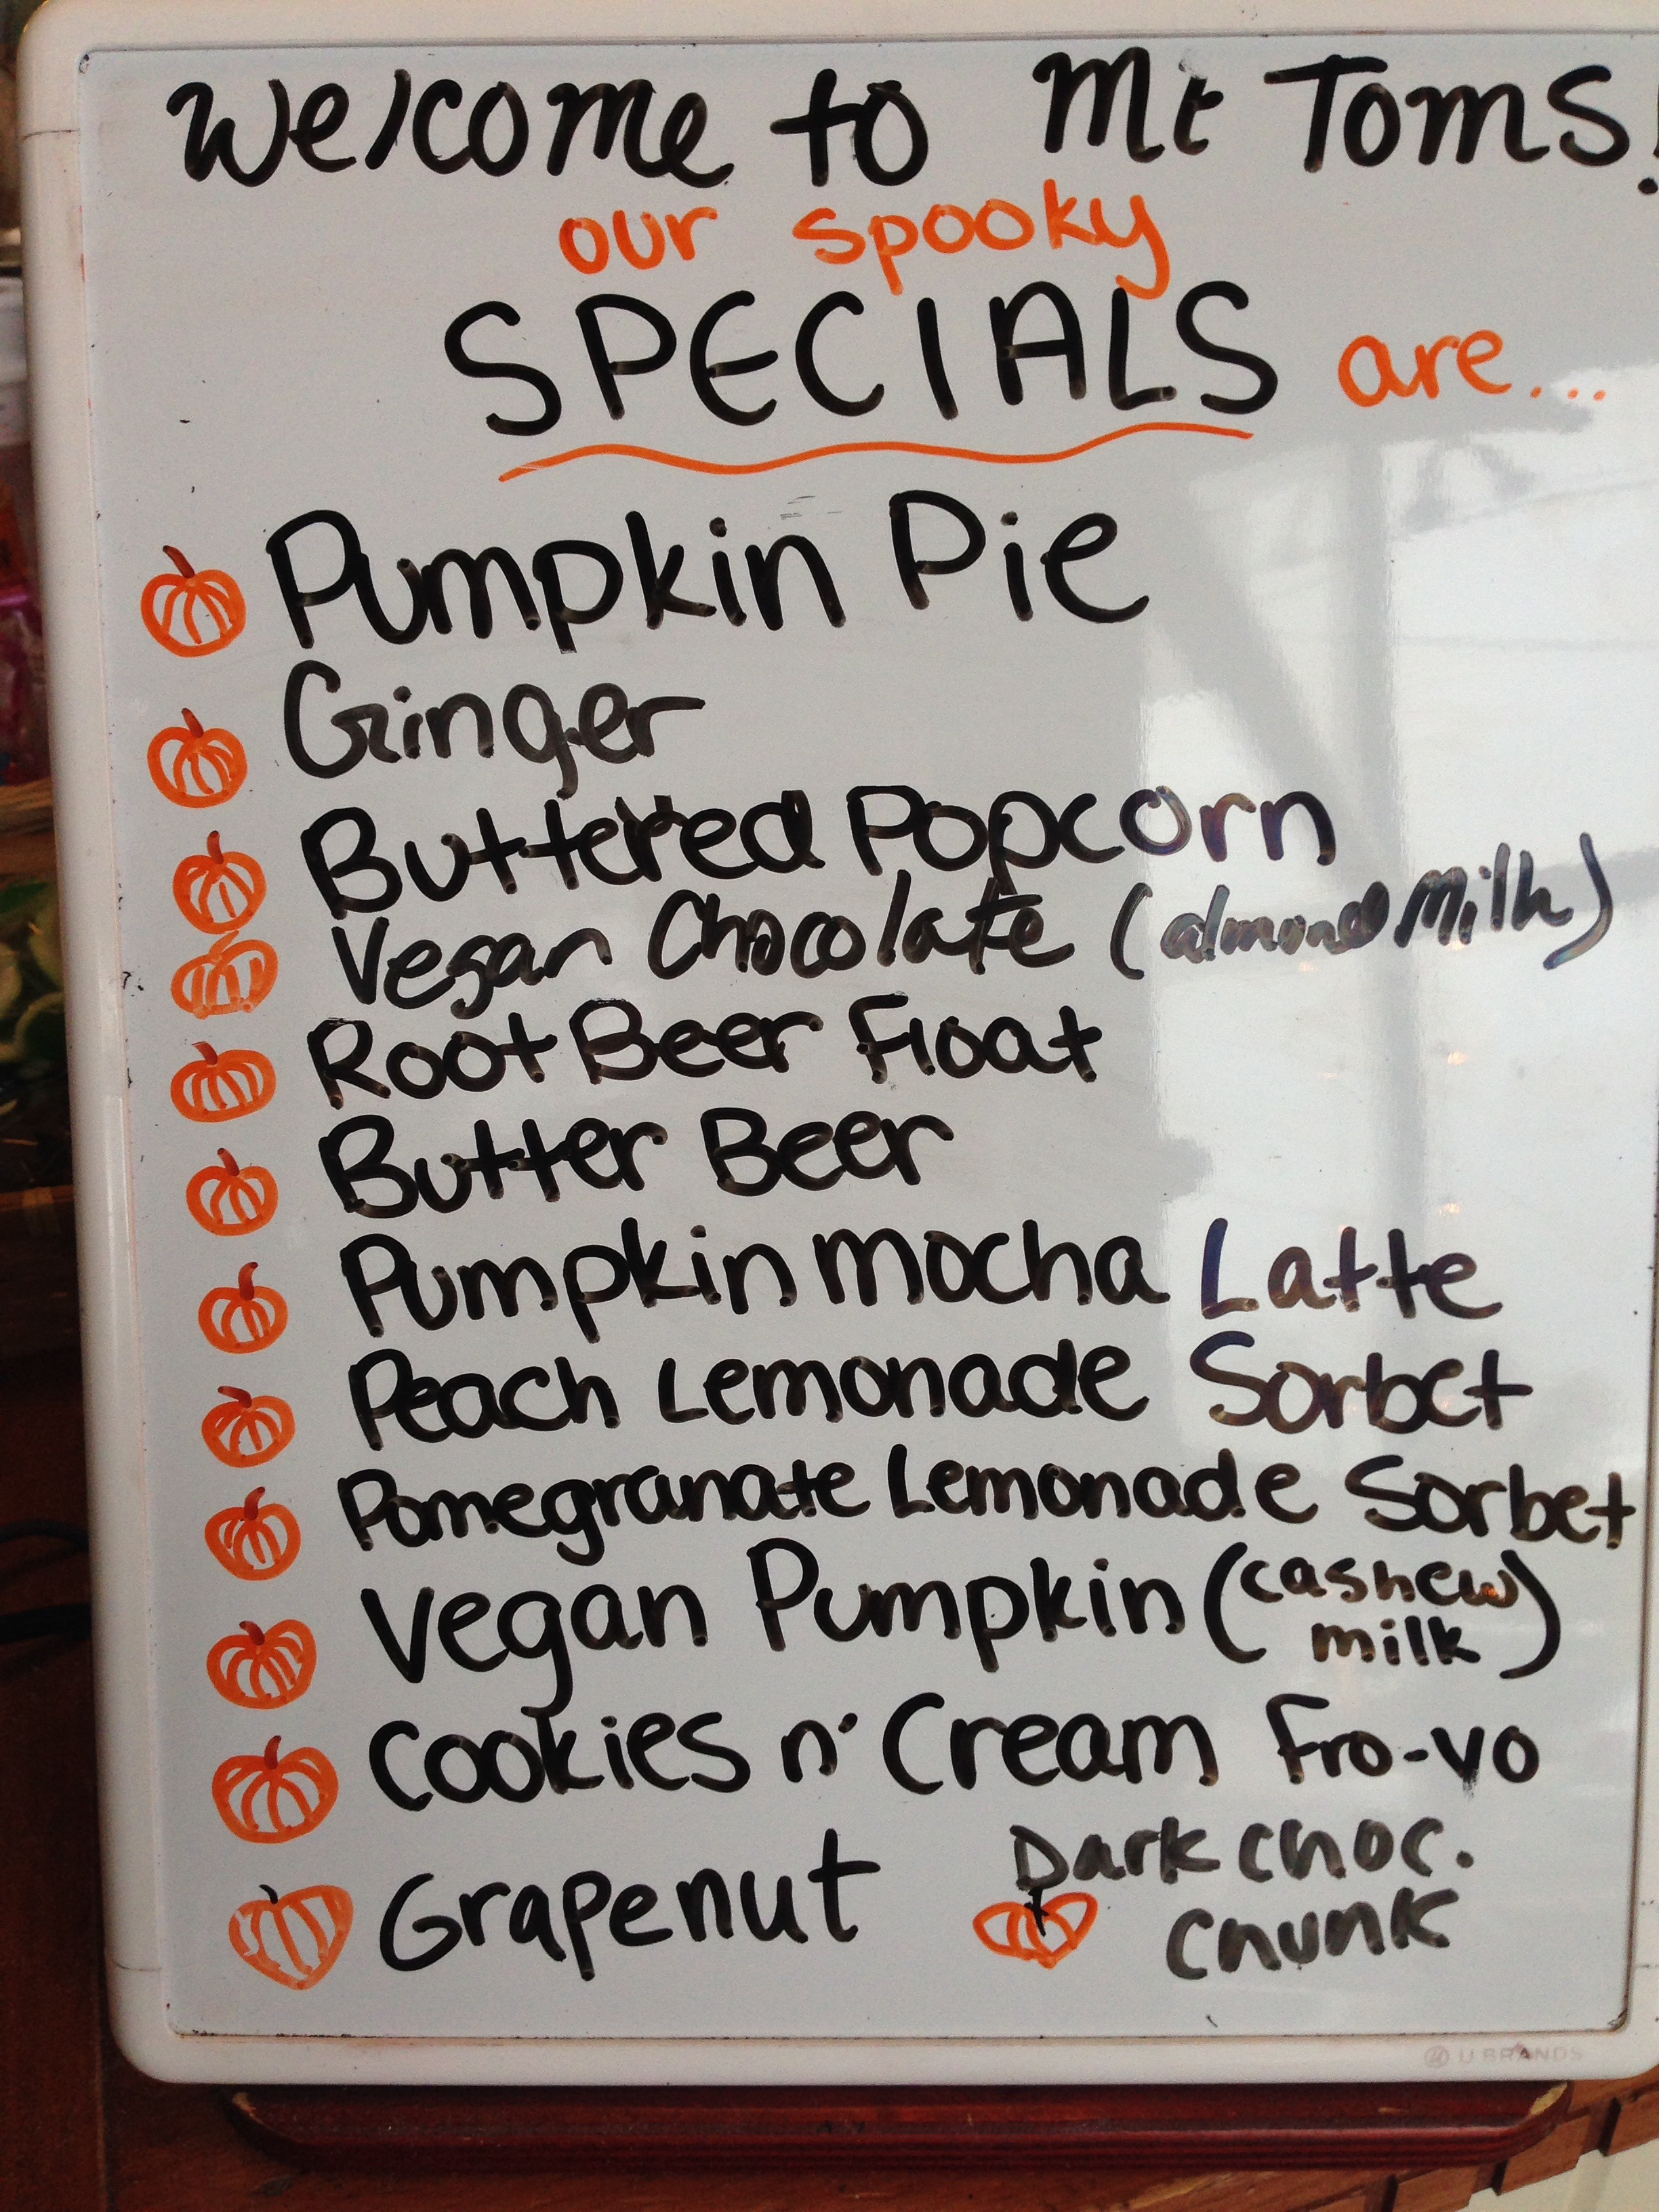 Welcome to Mt Toms!
our spooky
SPECIALS are...
Pumpkin Pie
Ginger
Buttered Popcorn
Vegan Chocolate (almond Milk)
Root Beer Float
Butter Beer
Pumpkin Mocha Latte
Peach Lemonade Sorbet
Pomegranate Lemonade Sorbet
Vegan Pumpkin (cashew
milk)
Cookies n' Cream Fro-yo
Grapenut
Dark choc.
chunk
U BRANDS